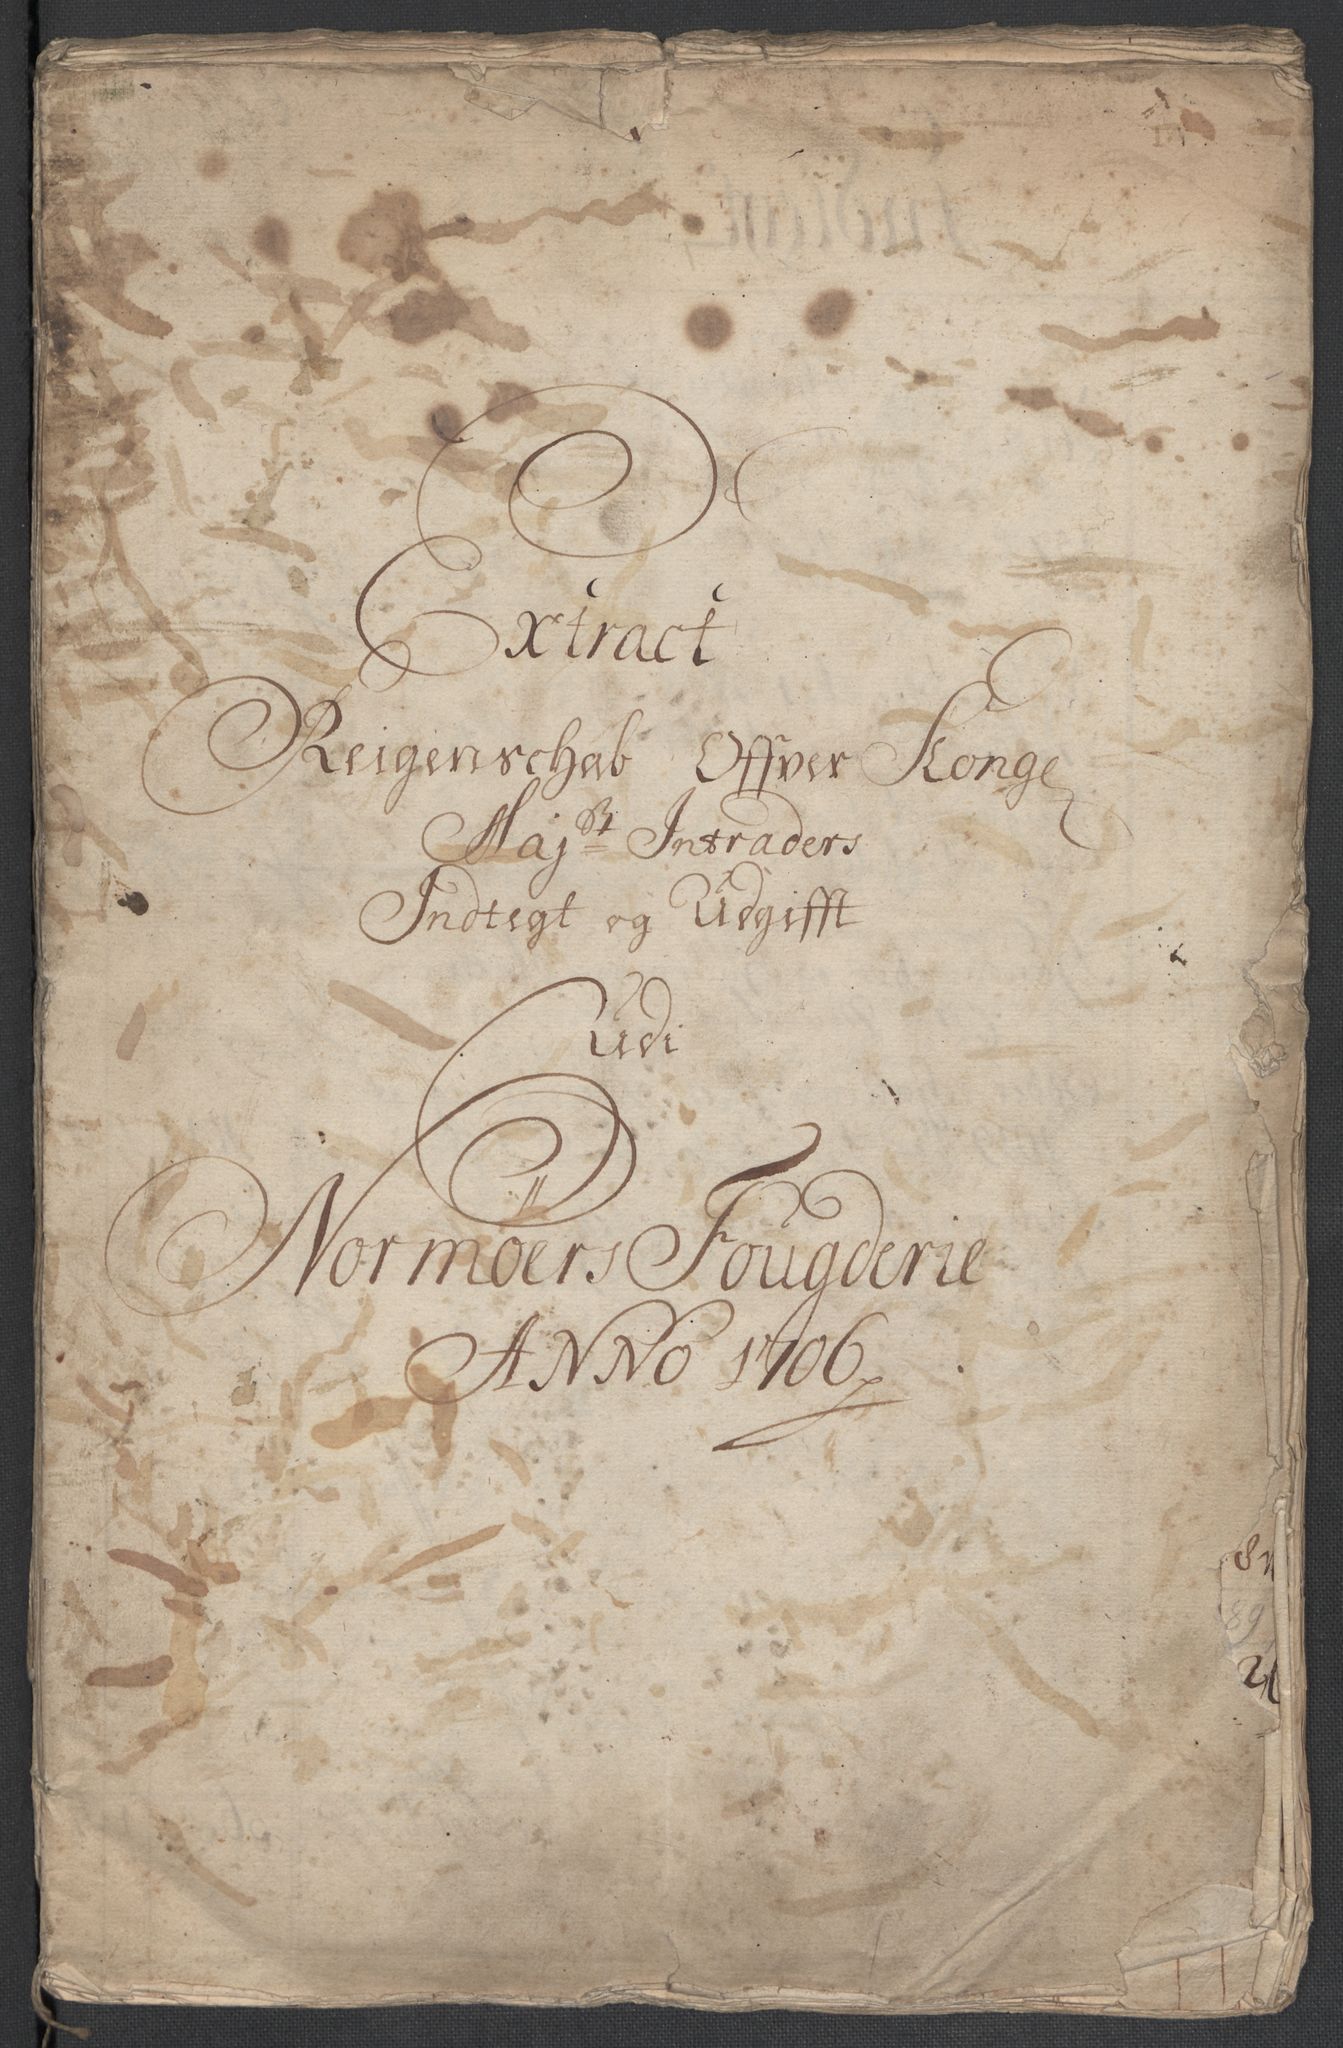 Extract
Reigenschab Offver Konge
Maj:st Intraders
Indtegt og Udgifft
Udi
Normøers Fougderie
ANNO 1706